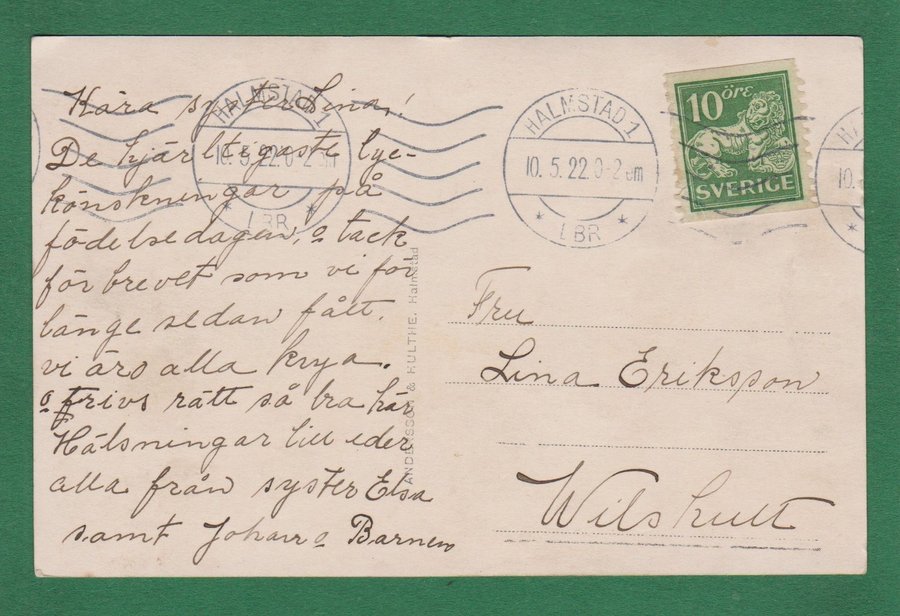 Kära syster Lina!
De hjärtligaste lyc-
könskningar på
födelsedagen, o tack
för brevet som vi för
länge sedan fått.
vi äro alla krya.
o trivs rätt så bra här
Hälsningar till eder
alla från syster Elsa
samt Johan o Barnen
HALMSTAD 1
10.5.22.0-2 em
* LBR *
HALMSTAD 1
10.5.22.0-2 em
* LBR *
10 öre
SVERIGE
ANDERSSON & HULTHE, Halmstad
Fru
Lina Eriksson
Wilshult